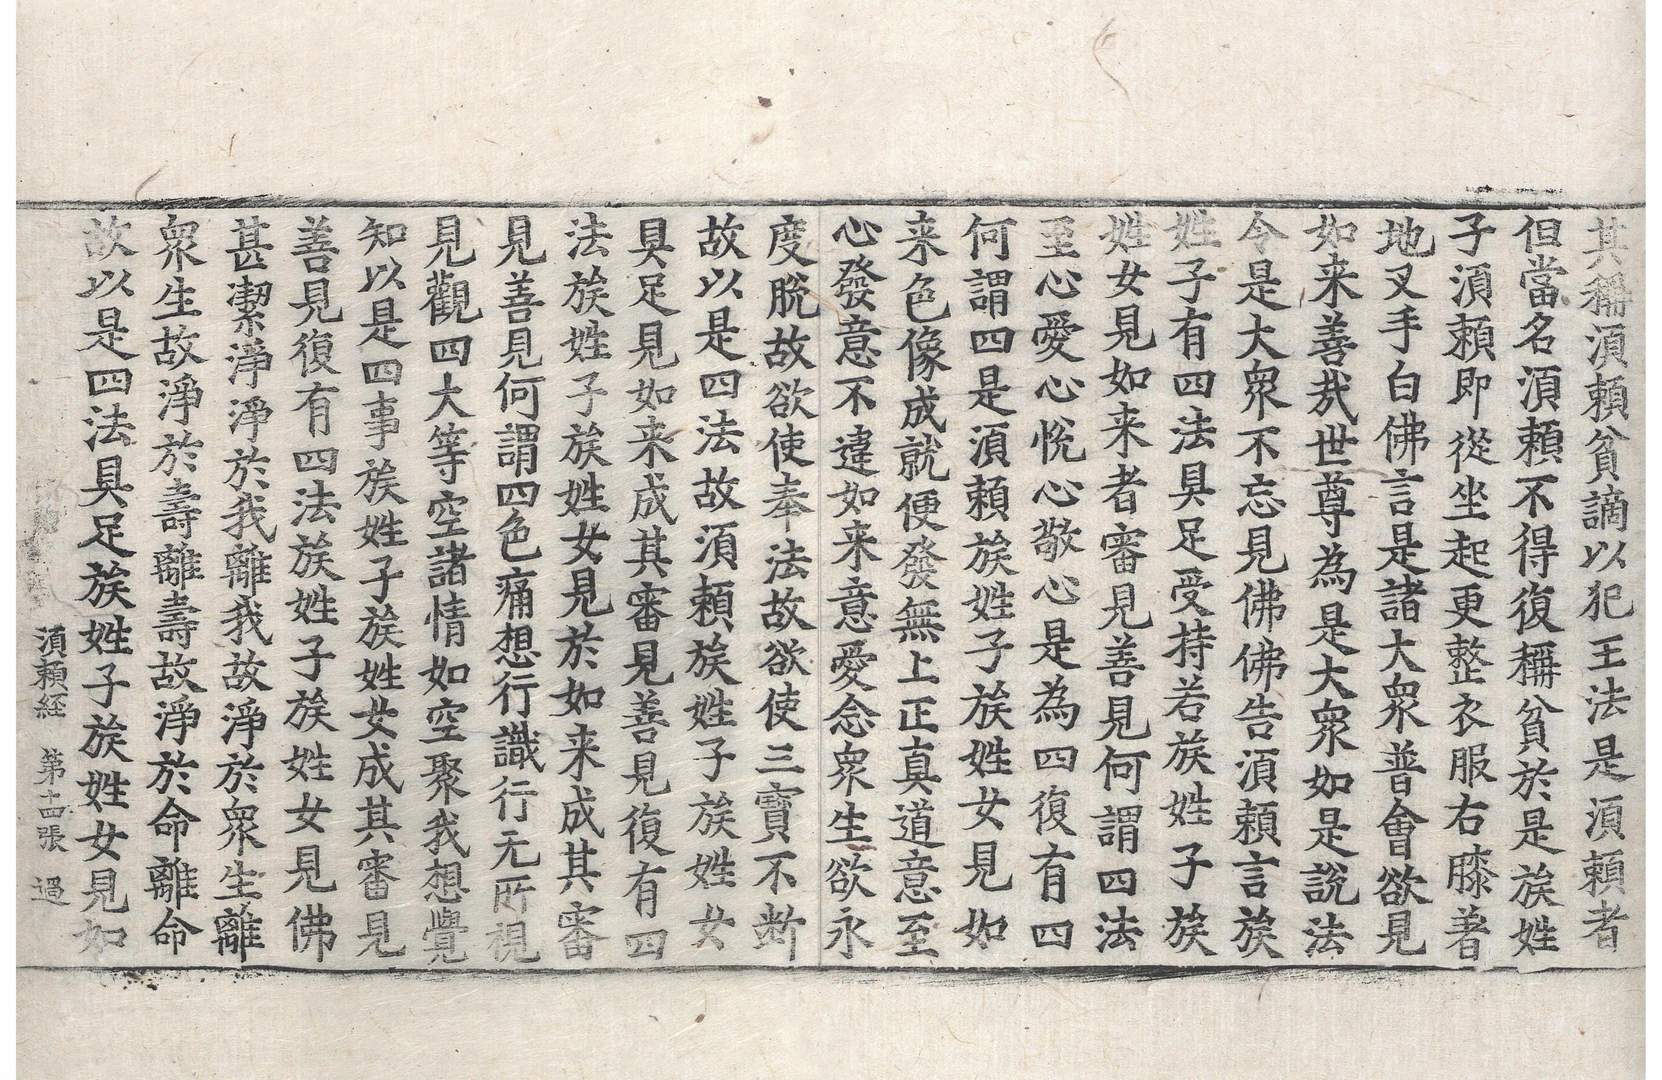 其稱湏頼貧謫以犯王法是湏頼者
但當名湏頼不得復稱貧於是族姓
子湏頼即從坐起更整衣服右膝著
地叉手白佛言是諸大衆普會欲見
如来善㢤世尊為是大衆如是說法
令是大衆不忘見佛佛告湏頼言族
姓子有四法具足受持若族姓子族
姓女見如来者審見善見何謂四法
至心愛心悅心敬心是為四復有四
何謂四是湏頼族姓子族姓女見如
来色像成就便發無上正真道意至
心發意不違如来意愛念衆生欲永
度脫故欲使奉法故欲使三寶不斷
故以是四法故湏頼族姓子族姓女
具足見如来成其審見善見復有四
法族姓子族姓女見於如来成其審
見善見何謂四色痛想行識行无所視
見觀四大等空諸情如空聚我想覺
知以是四事族姓子族姓女成其審見
善見復有四法族姓子族姓女見佛
甚潔淨淨於我離我故淨於衆生離
衆生故淨於壽離壽故淨於命離命
故以是四法具足族姓子族姓女見如
湏頼經 第十四張 過